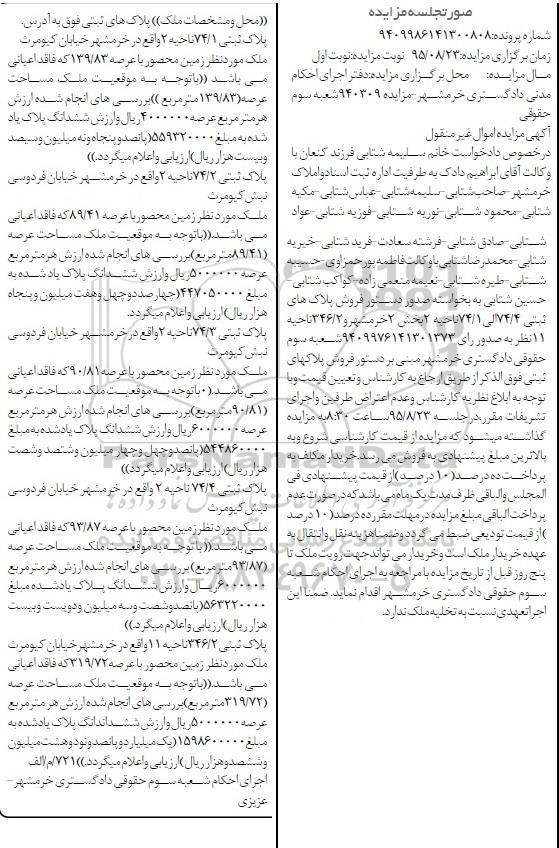 صورتجلسه مزایده
شماره پرونده: ۹۴۰۹۹۸۶۱۴۱۳۰۰۸۰۸
زمان برگزاری مزایده: ۹۵/۰۸/۲۳ نوبت مزایده: نوبت اول
مـال مزایـده: محل برگـزاری مزایده: دفتر اجرای احکام
مدنی دادگسـتری خرمشـهر- مزایده ۹۴۰۳۰۹ شعبه سوم
حقوقی
آگهی مزایده اموال غیر منقول
در خصوص دادخواست خانم سـلیمه شتابی فرزند کنعان با
وکالت آقای ابراهیم دادک به طرفیت اداره ثبت اسناد و املاک
خرمشهر- صاحب شتابی- سلیمه شتابی- عباس شتابی- مکیه
شتابی- محمود شـتابی- توریه شـتابی- فوزیه شتابی- عواد
شـتابی- صادق شتابی- فرشته سعادت- فرید شتابی- خیریه
شتابی- محمدرضا شتابی با وکالت فاطمه پور حمزاوی- حسیبه
شـتابی- طیره شـتابی- نعیمه منعمی زاده- کواکب شتابی-
حسین شتابی به بخواسته صدور دسـتور فروش پلاک های
ثبتی ۷۴/۴ الی ۷۴/۱ ناحیه ۲ بخش ۲ خرمشهر و ۳۴۶/۲ ناحیه
۱۱ نظر به صدور رای ۹۴۰۹۹۷۶۱۴۱۳۰۱۳۷۳ شـعبه سوم
حقوقی دادگستری خرمشهر مبنی بر دستور فروش پلاکهای
ثبتی فوق الذکر از طریق ارجاع به کارشناس و تعیین قیمت و با
توجه به ابلاغ نظریه کارشناس و عدم اعتراض طرفین و اجرای
تشریفات مقرر در جلسـه ۹۵/۸/۲۳ سـاعت ۸:۳۰ به مزایده
گذاشـته میشـود که مزایده از قیمت کارشناسی شروع و به
بالاترین مبلغ پیشنهادی به فروش می رسد. خریدار مکلف به
پرداخـت ده درصـد (۱۰ درصـد) از قیمت پیشـنهادی فی
المجلس و الباقی ظرف مدت یک ماه می باشد که در صورت عدم
پرداخت الباقی مبلغ مزایده در مهلت مقرر ده درصد (۱۰ درصد
) از قیمت تودیعی ضبط می گردد و ضمنا هزینه نقل و انتقال به
عهده خریدار ملک است و خریدار می تواند جهت رویت ملک تا
پنج روز قبل از تاریخ مزایده با مراجعه به اجرای احکام شـعبه
سوم حقوقی دادگستری خرمشـهر اقدام نماید. ضمنا این
اجرا تعهدی نسبت به تخلیه ملک ندارد.
((محل و مشخصات ملک)) پلاک های ثبتی فوق به آدرس.
پلاک ثبتی ۷۴/۱ ناحیه ۲ واقع در خرمشهر خیابان کیومرث
ملک مورد نظر زمین محصور با عرصه ۱۳۹/۸۳ که فاقد اعیانی
می باشـد ((باتوجـه بـه موقعیـت ملـک مسـاحت
عرصه (۱۳۹/۸۳ متر مربع)) بررسـی های انجام شـده ارزش
هر متر مربع عرصه ۴۰۰۰۰۰۰ ریال و ارزش ششدانگ پلاک یاد
شده به مبلغ ۵۵۹۳۲۰۰۰۰ (پانصد و پنجاه و نه میلیون و سیصد
و بیست هزار ریال) ارزیابی و اعلام میگردد.))
پلاک ثبتی ۷۴/۲ ناحیه ۲ واقع در خرمشـهر خیابان فردوسی
نبش کیومرث
ملـک مورد نظر زمین محصور با عرصه ۸۹/۴۱ که فاقد اعیانی
می باشـد.((باتوجه بـه موقعیـت ملک مسـاحت عرصه
(۸۹/۴۱ متر مربع) بررسـی های انجام شـده ارزش هر متر مربع
عرصه ۵۰۰۰۰۰۰ ریال و ارزش ششـدانـگ پلاک یاد شـده به
مبلغ ۴۴۷۰۵۰۰۰۰ (چهارصد و چهل و هفت میلیون و پنجاه
هزار ریال) ارزیابی و اعلام میگردد.
پلاک ثبتی ۷۴/۳ ناحیه ۲ واقع در خرمشهر خیابان فردوسی
نبش کیومرث
ملـک مورد نظر زمین محصور با عرصه ۹۰/۸۱ که فاقد اعیانی
می باشـد.(۰ باتوجه بـه موقعیـت ملک مسـاحت عرصه
(۹۰/۸۱ متر مربع) بررسـی های انجام شده ارزش هر متر مربع
عرصه ۶۰۰۰۰۰۰ ریال و ارزش ششدانگ پلاک یاد شده به مبلغ
۵۴۴۸۶۰۰۰۰ (پانصد و چهل و چهار میلیون و شتصد و شصت
هزار ریال) ارزیابی و اعلام میگردد))
پلاک ثبتی ۷۴/۴ ناحیه ۲ واقع در خرمشهر خیابان فردوسی
نبش کیومرث
ملـک مورد نظر زمین محصور با عرصه ۹۳/۸۷ که فاقد اعیانی
می باشـد.((با توجـه به موقعیـت ملک مساحت عرصه
(۹۳/۸۷ متر مربع) بررسـی های انجام شده ارزش هر متر مربع
۶۰۰۰۰۰۰ ریـال و ارزش ششـدانـگ پـلاک یاد شـده مبلغ
۵۶۳۲۲۰۰۰۰ (پانصد و شصت و سه میلیون و دویست و بیست
هزار ریال) ارزیابی و اعلام میگردد.))
پلاک ثبتی ۳۴۶/۲ ناحیه ۱۱ واقع در خرمشهر خیابان کیومرث
ملک مورد نظر زمین محصور با عرصه ۳۱۹/۷۲ که فاقد اعیانی
می باشـد.((باتوجه بـه موقعیـت ملـک مسـاحت عرصه
(۳۱۹/۷۲ متر مربع) بررسی های انجام شده ارزش هر متر مربع
عرصه ۵۰۰۰۰۰۰ ریال و ارزش ششـدانداگ پلاک یاد شده به
مبلغ ۱۵۹۸۶۰۰۰۰۰ (یک میلیارد و پانصد و نود و هشت میلیون
و ششصد هزار ریال) ارزیابی و اعلام میگردد.)) ۷۲۱/م/الف
اجرای احکام شـعبه سـوم حقوقی دادگسـتری خرمشهر-
عزیزی